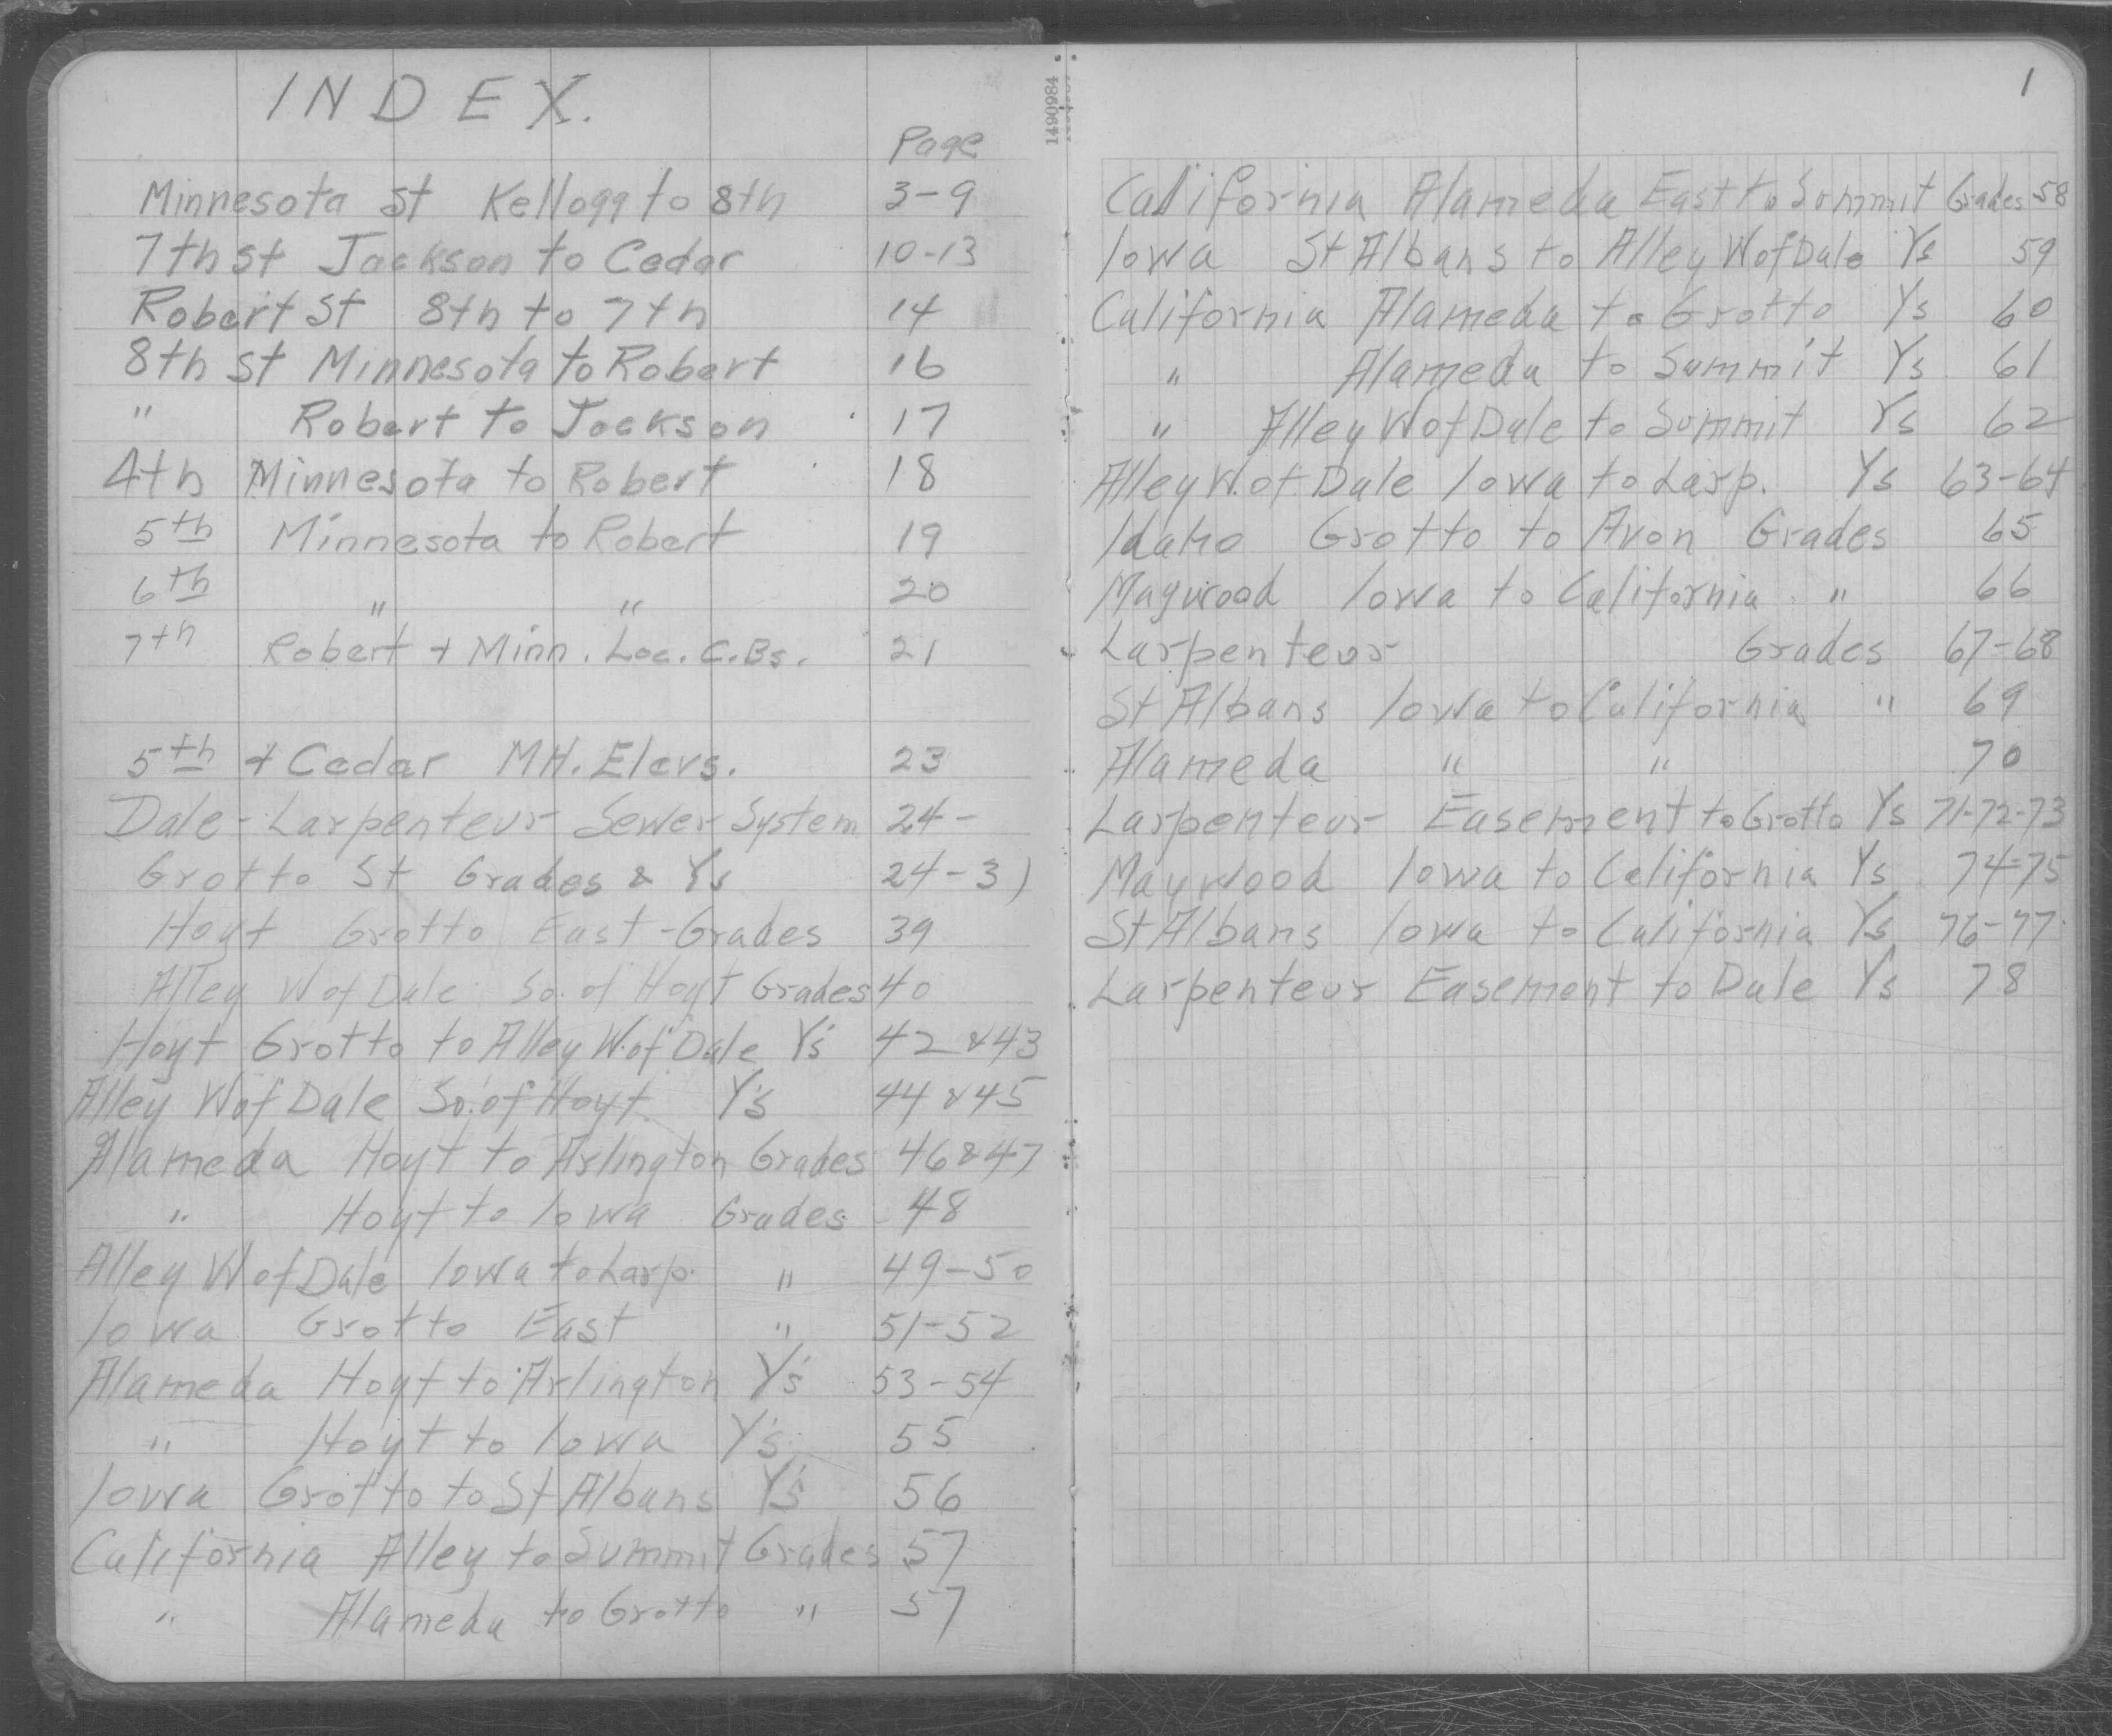 INDEX.
Page
Minnesota St Kellogg to 8th 3-9
7th St Jackson to Cedar 10-13
Robert St 8th to 7th 14
8th St Minnesota to Robert 16
" Robert to Jackson 17
4th Minnesota to Robert 18
5th Minnesota to Robert 19
6th " " 20
7th Robert + Minn. Loc. C.Bs. 21
5th + Cedar MH. Elevs. 23
Dale-Larpenteur Sewer System 24-
Grotto St Grades & Ys 24-31
Hoyt Grotto East-Grades 39
Alley W of Dale So. of Hoyt Grades 40
Hoyt Grotto to Alley W. of Dale Y's 42 & 43
Alley W of Dale So. of Hoyt Y's 44 & 45
Alameda Hoyt to Arlington Grades 46 & 47
" Hoyt to Iowa Grades 48
Alley W of Dale Iowa to Larp. " 49-50
Iowa Grotto East " 51-52
Alameda Hoyt to Arlington Y's 53-54
" Hoyt to Iowa Y's 55
Iowa Grotto to St Albans Y's 56
California Alley to Summit Grades 57
" Alameda to Grotto " 57
1490984
1
California Alameda East to Summit Grades 58
Iowa St Albans to Alley W of Dale Ys 59
California Alameda to Grotto Ys 60
" Alameda to Summit Ys 61
" Alley W of Dale to Summit Ys 62
Alley W. of Dale Iowa to Larp. Ys 63-64
Idaho Grotto to Avon Grades 65
Maywood Iowa to California " 66
Larpenteur Grades 67-68
St Albans Iowa to California " 69
Alameda " " 70
Larpenteur Easement to Grotto Ys 71-72-73
Maywood Iowa to California Ys 74-75
St Albans Iowa to California Ys 76-77
Larpenteur Easement to Dale Ys 78